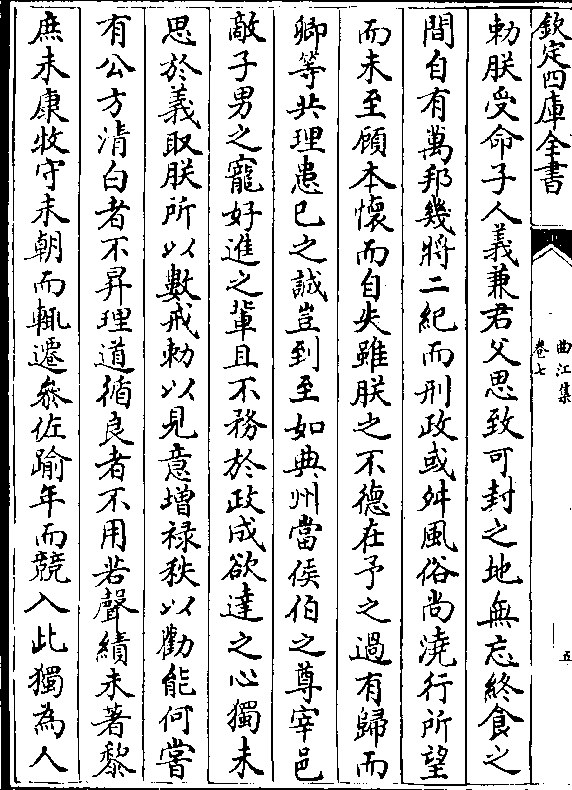 欽定四庫全書
曲江集
卷七
五
勅朕受命子人義兼君父思致可封之地無忘終食之
間自有萬邦幾將二紀而刑政或舛風俗尚澆行所望
而未至顧本懷而自失雖朕之不德在予之過有歸而
卿等共理患已之誠豈到至如典州當侯伯之尊宰邑
敵子男之寵好進之輩且不務於政成欲達之心獨未
思於義取朕所以數戒勅以見意增禄秩以勸能何嘗
有公方清白者不昇理道循良者不用若聲績未著黎
庶未康牧守未朝而輒遷叅佐踰年而競入此獨為人